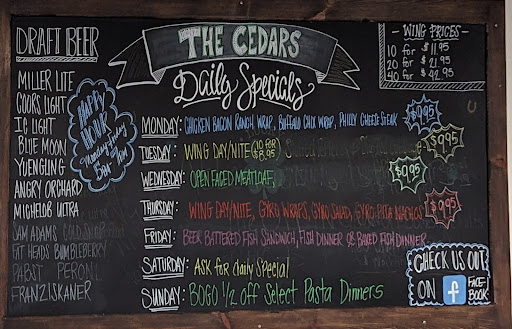 DRAFT BEER
MILLER LITE
COORS LIGHT
IC LIGHT
BLUE MOON
YUENGLING
ANGRY ORCHARD
MICHELOB ULTRA
SAM ADAMS COLD SNAP
FAT HEADS BUMBLEBERRY
PABST PERONI
FRANZISKANER
HAPPY HOUR
Monday-Friday
5pm 7pm
THE CEDARS
Daily Specials
- WING PRICES -
10 for $11.95
20 for $21.95
40 for $42.95
MONDAY: CHICKEN BACON RANCH WRAP, BUFFALO CHIX WRAP, PHILLY CHEESE STEAK $9.95
TUESDAY: WING DAY/NITE 10 FOR $8.95 $9.95
WEDNESDAY: OPEN FACED MEATLOAF $9.95
THURSDAY: WING DAY/NITE, GYRO WRAPS, GYRO SALAD, GYRO PITA NACHOS $9.95
FRIDAY: BEER BATTERED FISH SANDWICH, FISH DINNER OR BAKED FISH DINNER
SATURDAY: ASK for daily Special
SUNDAY: BOGO 1/2 off Select Pasta Dinners
CHECK US OUT
ON f FACE-
BOOK